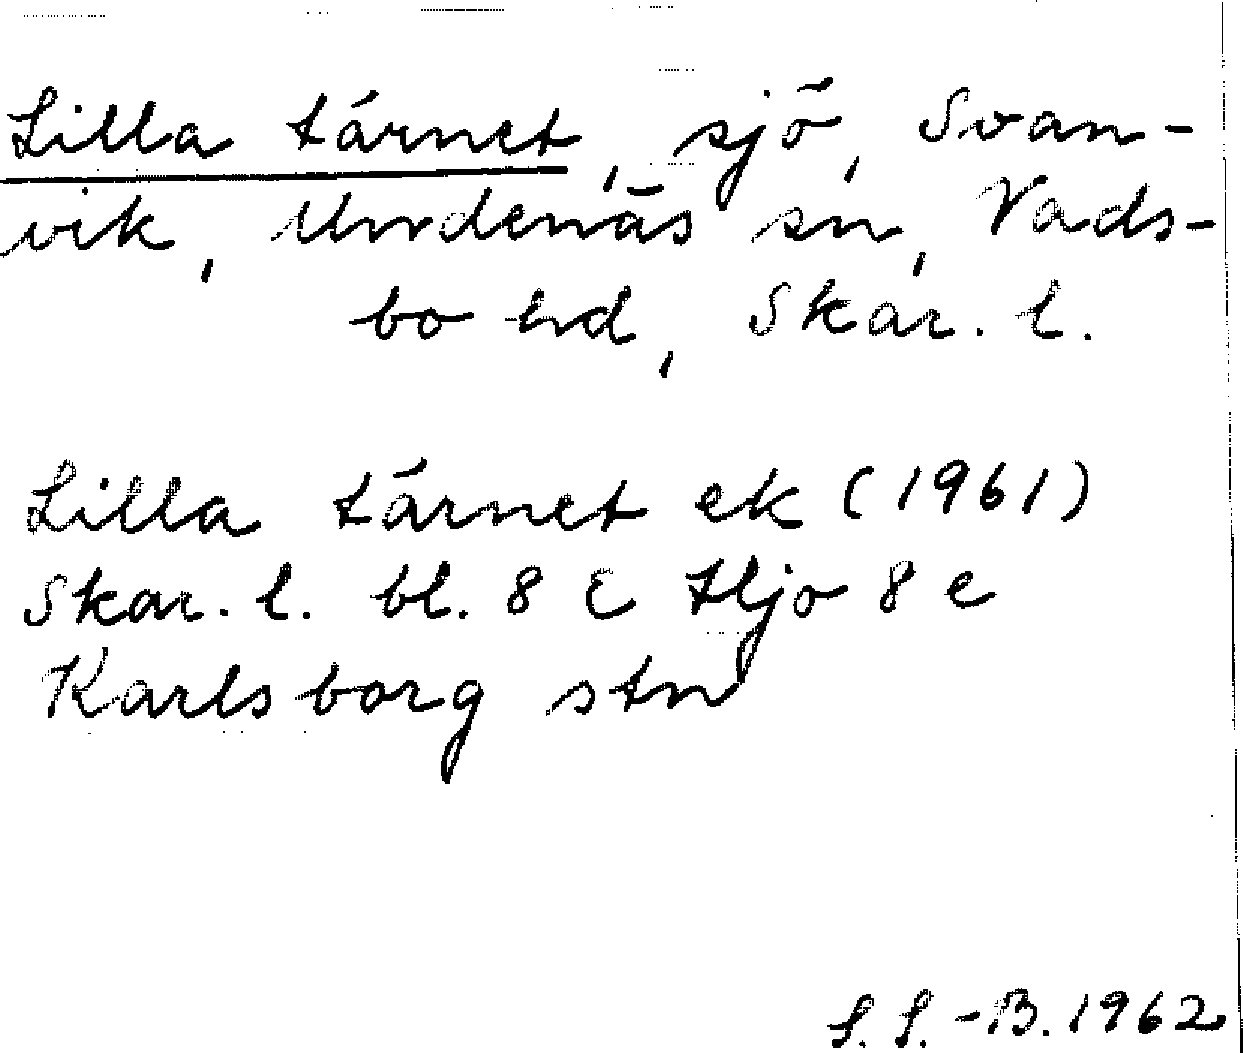 Lilla tärnet, sjö, Svan-
vik, Undenäs sn, Vads-
bo hd, Skar. l.
Lilla tärnet ek (1961)
Skar. l. bl. 8 E Hjo 8 e
Karlsborg stn
S. S.-B. 1962